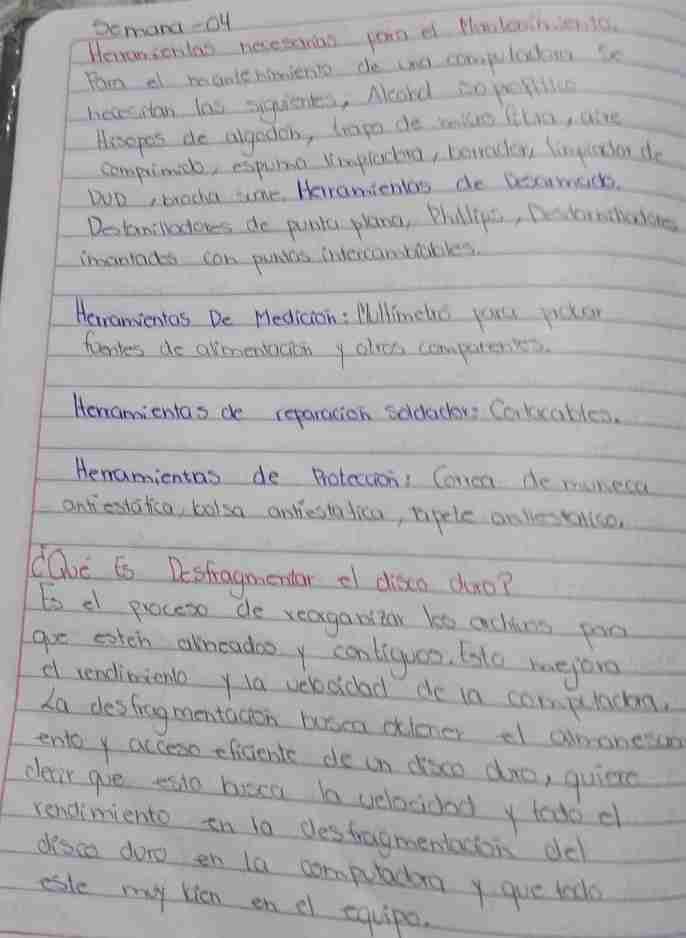 Semana - 04
Herramientas necesarias para el Mantenimiento.
Para el mantenimiento de una computadora se
necesitan las siguientes, Alcohol isopropilico
Hisopos de algodon, trapo de micro fibra, aire
comprimido, espuma limpiadora, borrador, limpiador de
DVD, brocha Herramientas de Desarmado.
Destornilladores de punta plana, Phillips, Destornilladores
imantados con puntas intercambiables.
Herramientas De Medicion: Multimetro para probar
fuentes de alimentación y otros componentes.
Herramientas de reparacion soldador:
Herramientas de Proteccion: Correa de muñeca
antiestática, bolsa antiestatica, tapete antiestatico.
¿Qué Es Desfragmentar el disco duro?
Es el proceso de reorganizar los archivos para
que estén alineados y contiguos. Esto mejora
el rendimiento y la velocidad de la computadora.
La desfragmentacion busca obtener el almanesam
iento y acceso eficiente de un disco duro, quiere
decir que esto busca la velocidad y todo el
rendimiento en la desfragmentacion del
disco duro en la computadora y que todo
este muy bien en el equipo.